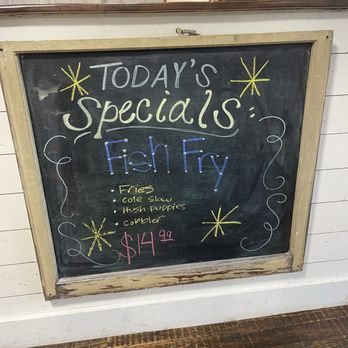 TODAY'S
Specials:
Fish Fry
• Fries
• Cole slaw
• Hush puppies
• Cobbler
$14.99